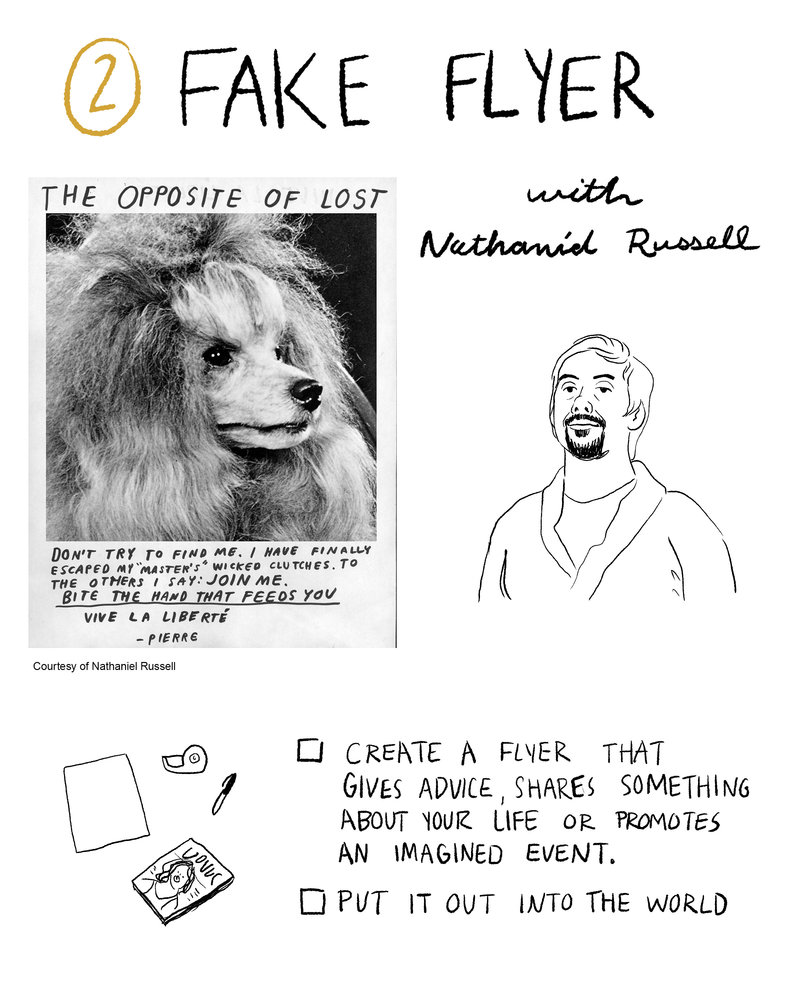 2 FAKE FLYER
with
Nathaniel Russell
THE OPPOSITE OF LOST
DON'T TRY TO FIND ME. I HAVE FINALLY
ESCAPED MY "MASTER'S" WICKED CLUTCHES. TO
THE OTHERS I SAY: JOIN ME.
BITE THE HAND THAT FEEDS YOU
VIVE LA LIBERTÉ
-PIERRE
Courtesy of Nathaniel Russell
VOGUE
CREATE A FLYER THAT
GIVES ADVICE, SHARES SOMETHING
ABOUT YOUR LIFE OR PROMOTES
AN IMAGINED EVENT.
PUT IT OUT INTO THE WORLD